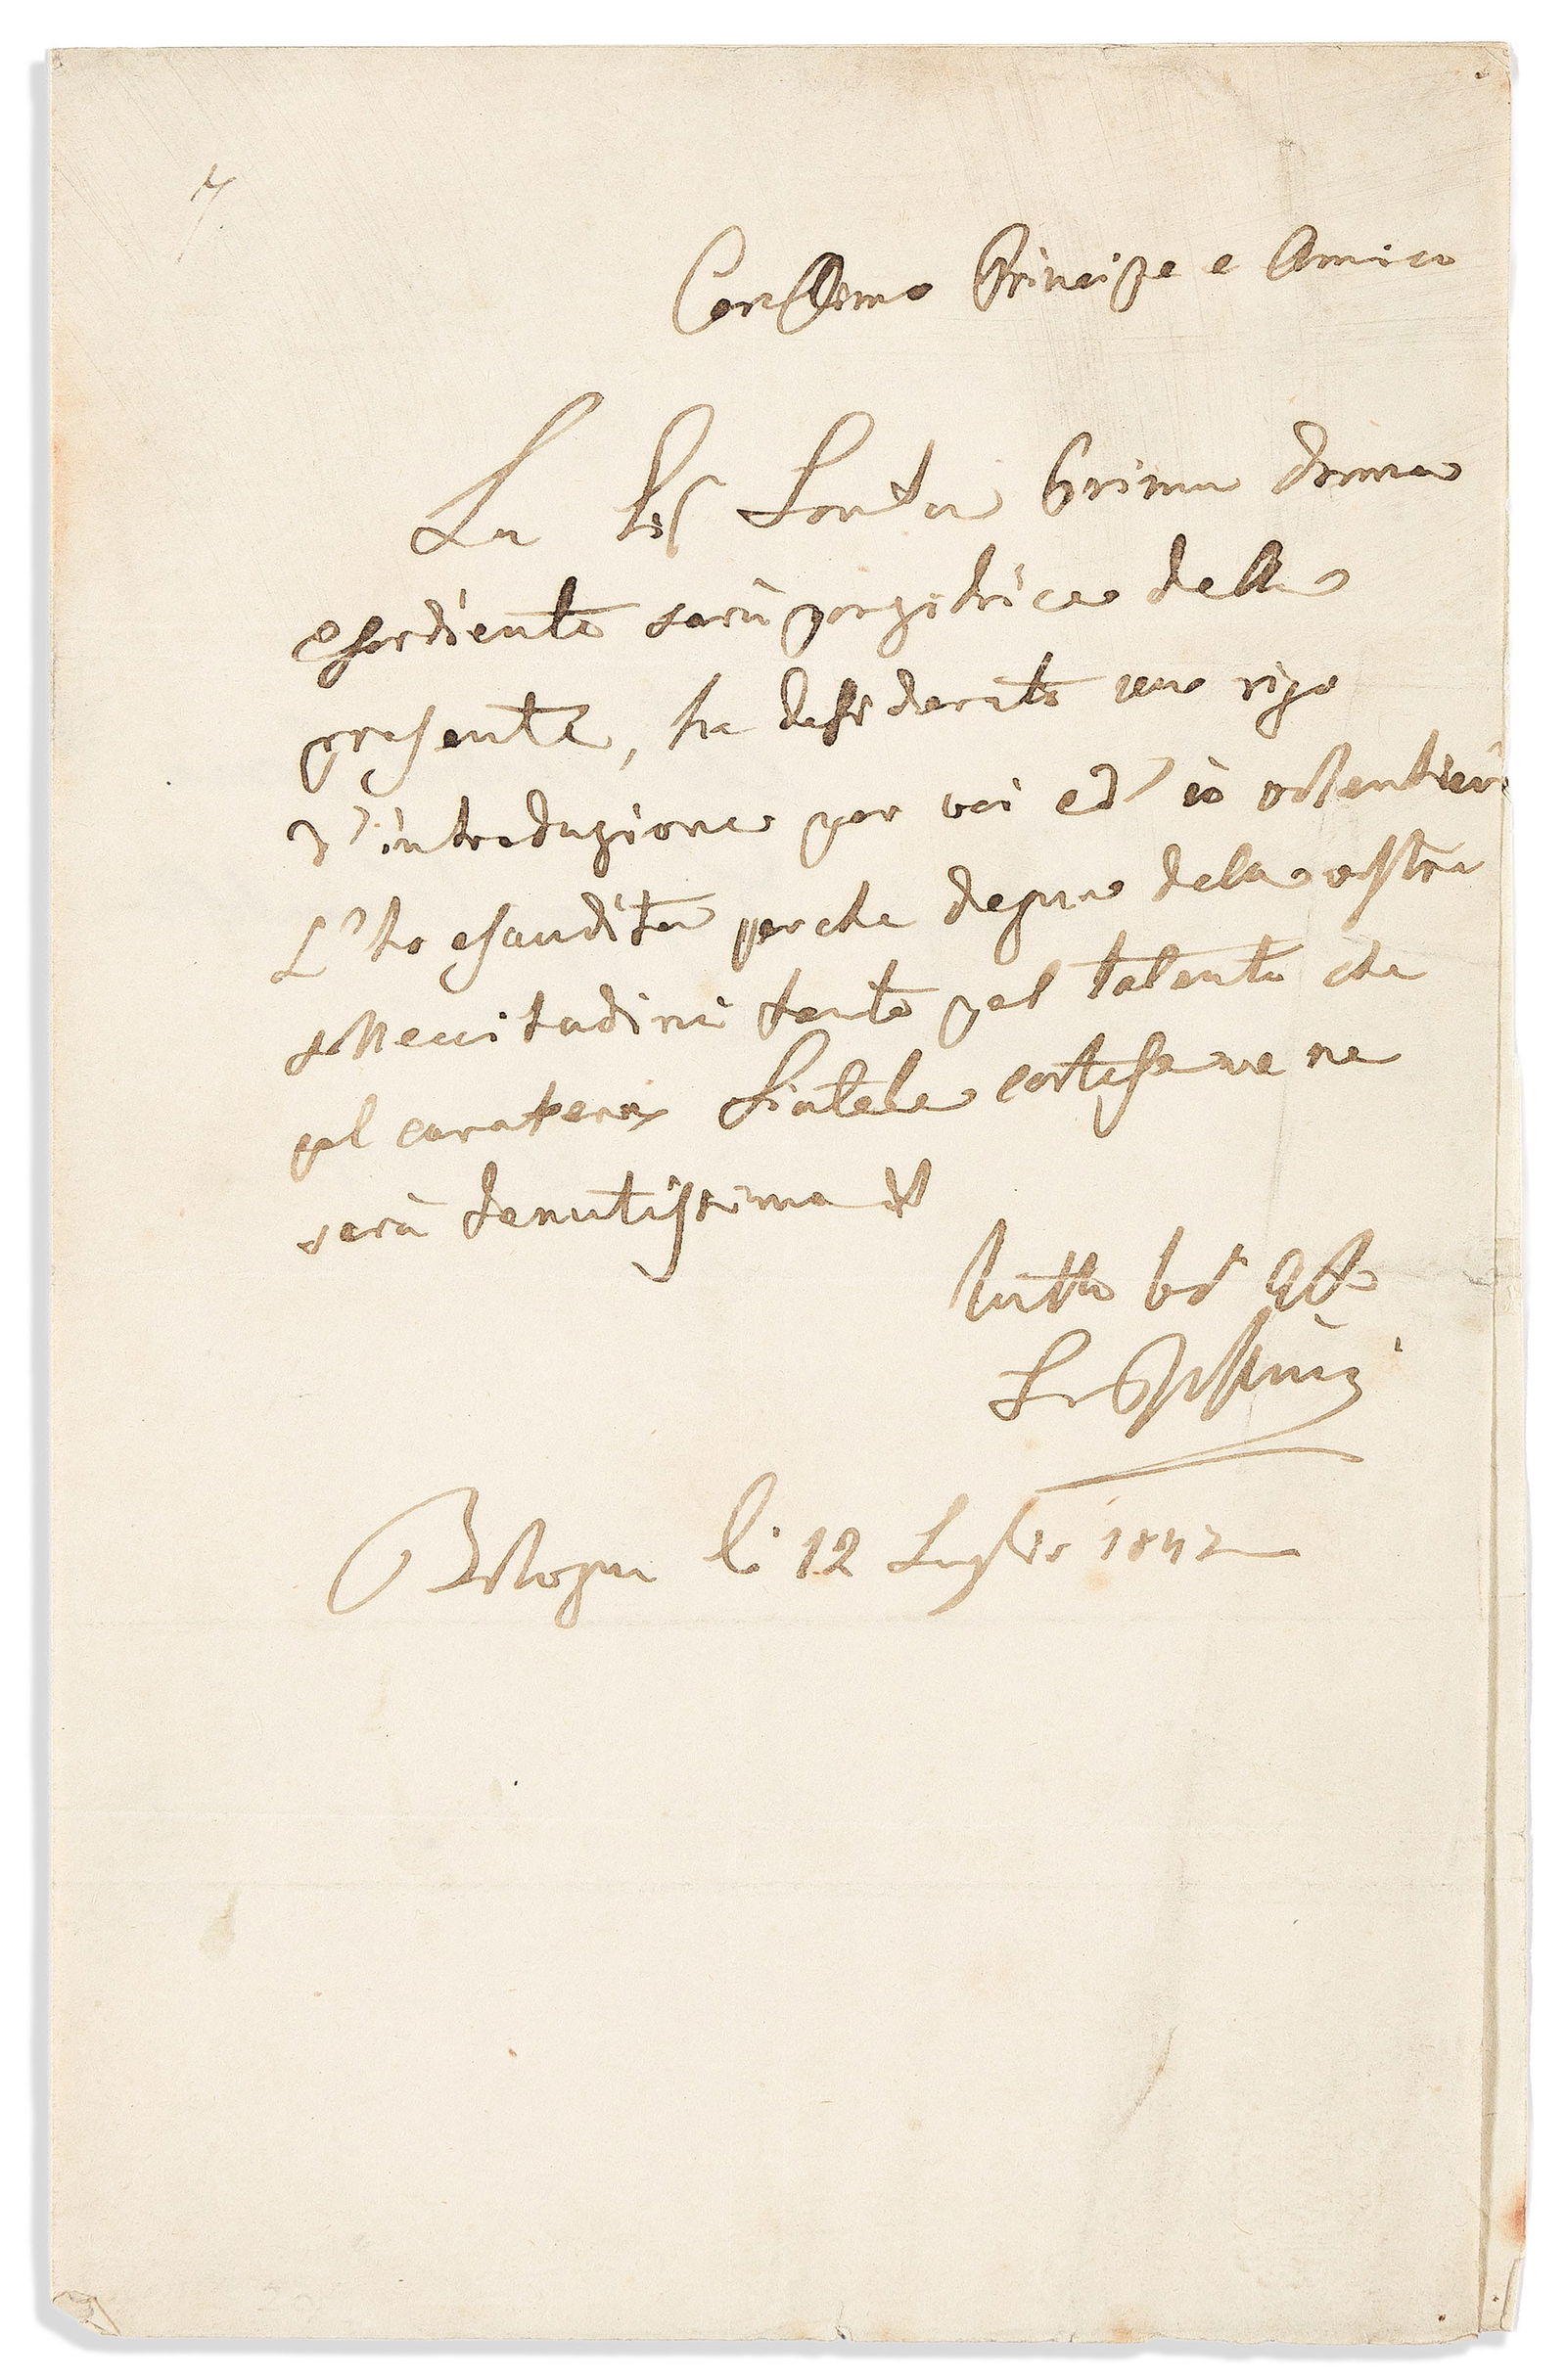 Carissimo Principe e Amico
La Sig Prima donna
esordiente sarà porgitrice della
presente, ha desiderato uno rigo
d'introduzione per voi ed io volentieri
L'ho esaudita perche degna della vostra
sollecitudini tanto pel talento che
pel carattere Siatele cortese ve ne
sarà tenutissimo il
tutto vos aff
G Rossini
Bologna li 12 Luglio 1842